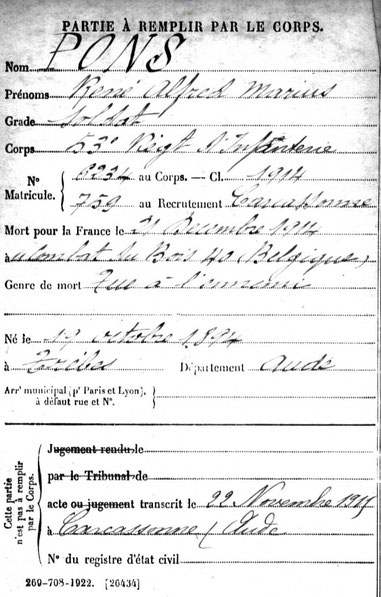 PARTIE À REMPLIR PAR LE CORPS.
Nom PONS
Prénoms René Alfred Marius
Grade Soldat
Corps 53e Regt d'Infanterie
N° Matricule. 6234 au Corps. — Cl. 1914
759 au Recrutement Carcassonne
Mort pour la France le 21 Decembre 1914
à au combat du Bois 40 (Belgique)
Genre de mort Tué à l'ennemi
Né le 19 octobre 1894
à Trèbes Département Aude
Arrt municipal (pr Paris et Lyon),
à défaut rue et N°.
Cette partie n'est pas à remplir par le Corps.
Jugement rendu le
par le Tribunal de
acte ou jugement transcrit le 22 Novembre 1915
à Carcassonne (Aude
N° du registre d'état civil
269-708-1922. [26434]